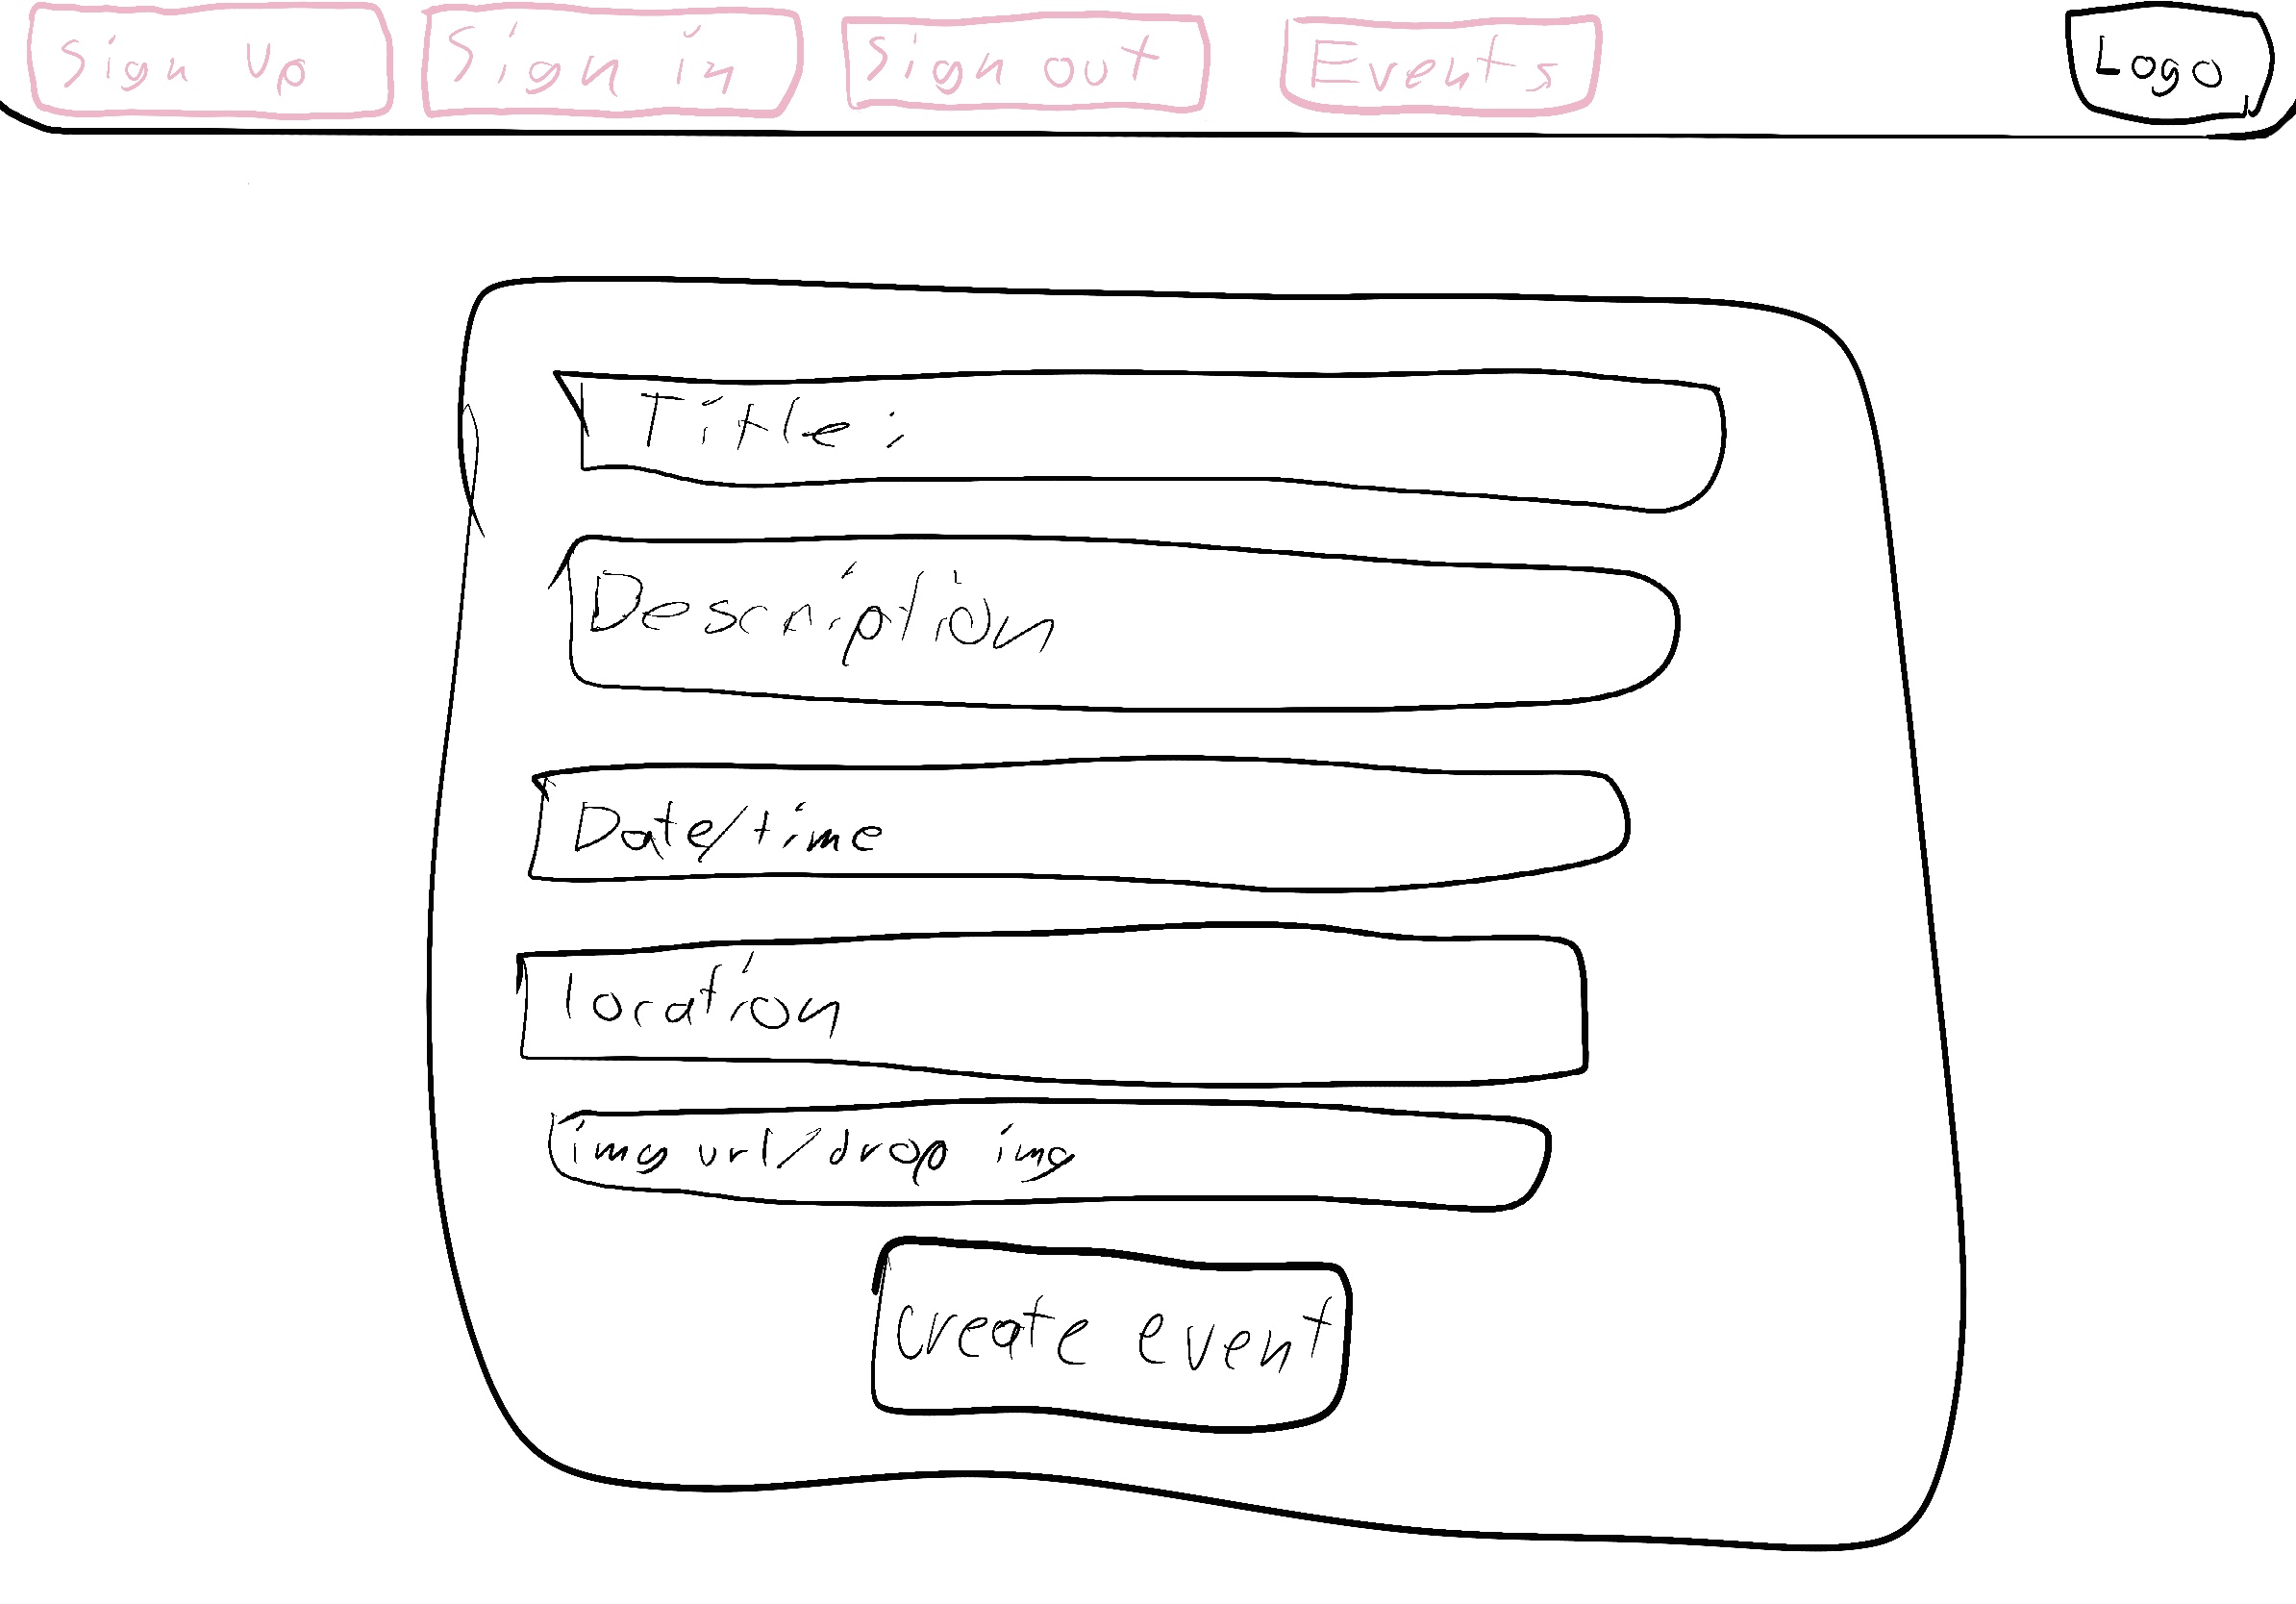 Sign up Sign in Sign out Events Logo
Title:
Description
Date/time
location
img url/drop img
create event